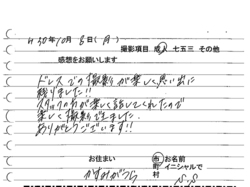 H30年10月8日(月)
撮影項目 成人 七五三 その他
感想をお願いします
ドレスでの撮影が楽しく思い出に
残りました!!
スタッフの方が楽しく話してくれたので
楽しく撮影できました。
ありがとうございます!!
お住まい
市 お名前
町 イニシャルで
村
かすみがうら
S.S